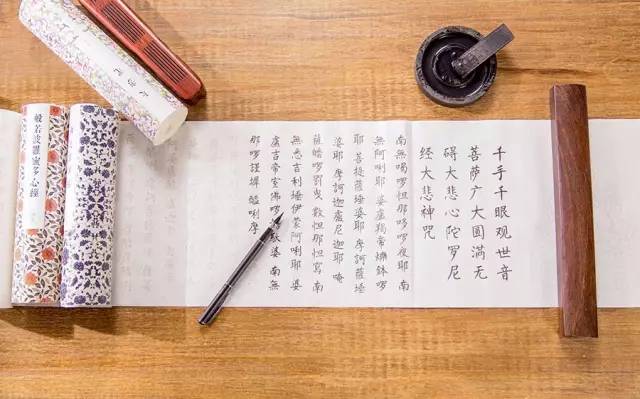 千手千眼观世音
菩萨广大圆满无
碍大悲心陀罗尼
经大悲神咒
南無喝啰怛那哆啰夜耶 南
無阿唎耶 婆盧羯帝爍鉢啰
耶菩提薩埵婆耶 摩訶薩埵
婆耶 摩訶迦盧尼迦耶 唵
薩皤啰罰曳 數怛那怛寫 南
無悉吉利埵伊蒙阿唎耶 婆
盧吉帝室佛啰 馱婆 南無
那啰謹墀 醯唎摩
般若波羅蜜多心經